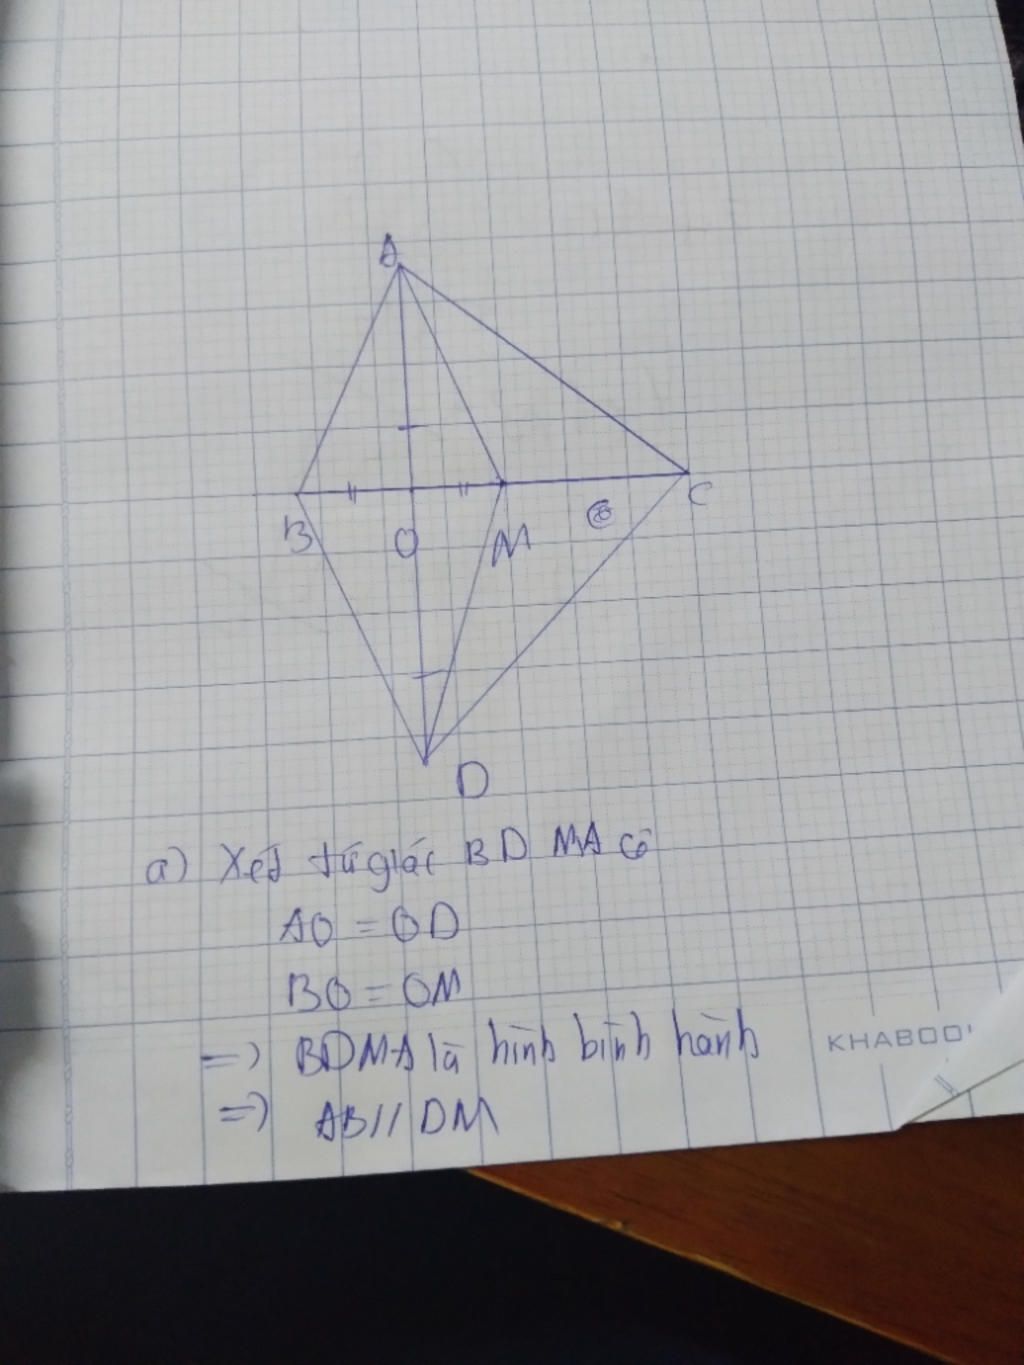 A
B
O
M
C
D
a) Xét tứ giác BDMA có
AO = OD
BO = OM
=> BDMA là hình bình hành
KHABOO
=> AB // DM